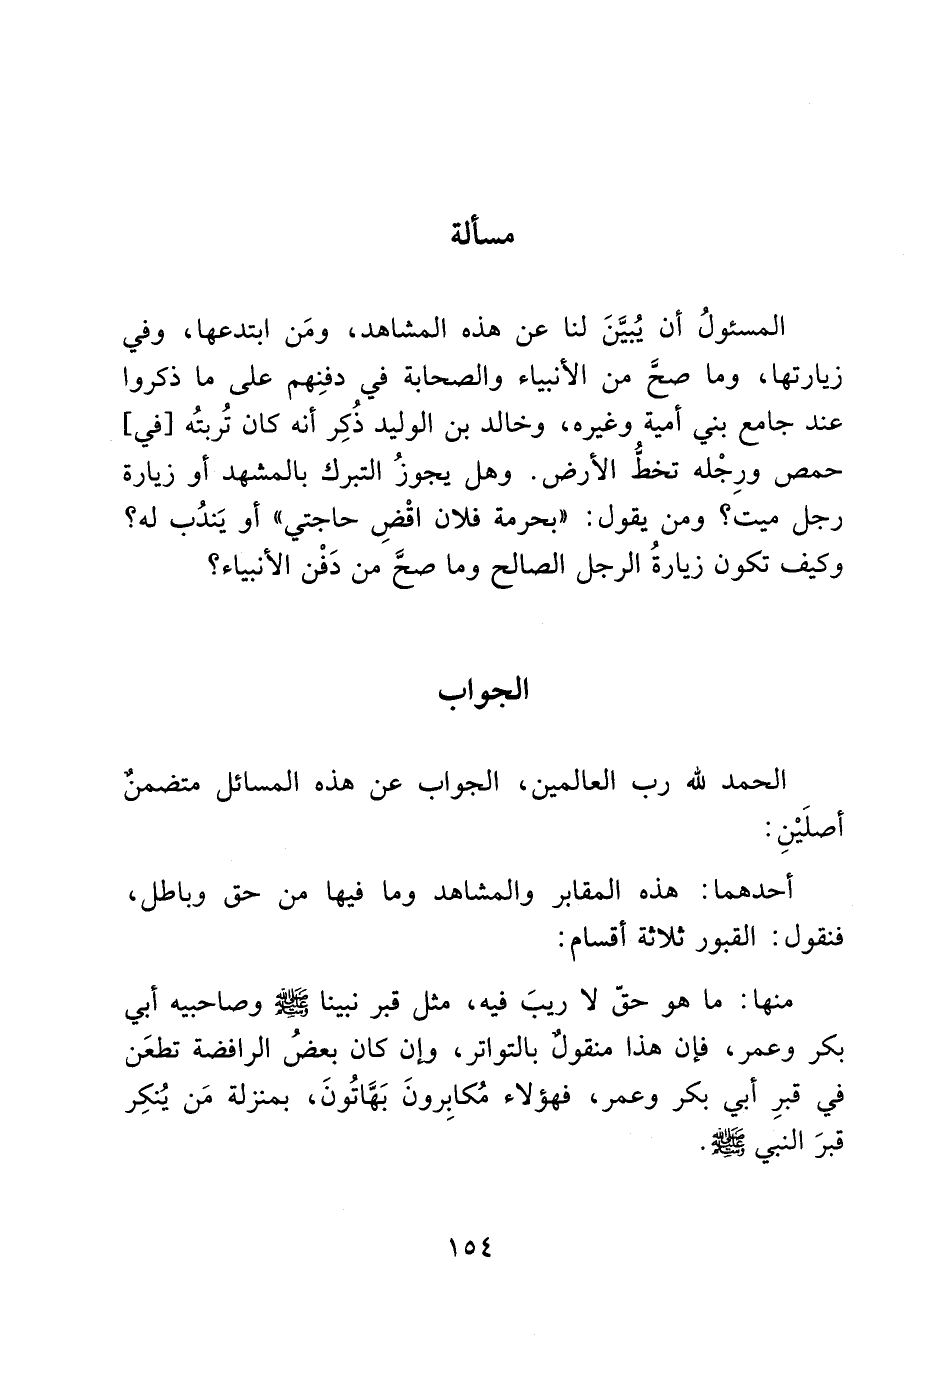 مسألة
المسئولُ أن يُبيَّنَ لنا عن هذه المشاهد، ومَن ابتدعها، وفي
زيارتها، وما صحَّ من الأنبياء والصحابة في دفنِهم على ما ذكروا
عند جامع بني أمية وغيره، وخالد بن الوليد ذُكِر أنه كان تُربتُه [في]
حمص ورِجْله تخطُّ الأرض. وهل يجوزُ التبرك بالمشهد أو زيارة
رجل ميت؟ ومن يقول: «بحرمة فلان اقْضِ حاجتي» أو يَندُب له؟
وكيف تكون زيارةُ الرجل الصالح وما صحَّ من دَفْن الأنبياء؟
الجواب
الحمد لله رب العالمين، الجواب عن هذه المسائل متضمنٌ
أصلَيْنِ:
أحدهما: هذه المقابر والمشاهد وما فيها من حق وباطل،
فنقول: القبور ثلاثة أقسام:
منها: ما هو حقّ لا ريبَ فيه، مثل قبر نبينا ﷺ وصاحبيه أبي
بكر وعمر، فإن هذا منقولٌ بالتواتر، وإن كان بعضُ الرافضة تطعَن
في قبرِ أبي بكر وعمر، فهؤلاء مُكابِرونَ بَهَّاتُونَ، بمنزلة مَن يُنكِر
قبرَ النبي ﷺ.
١٥٤